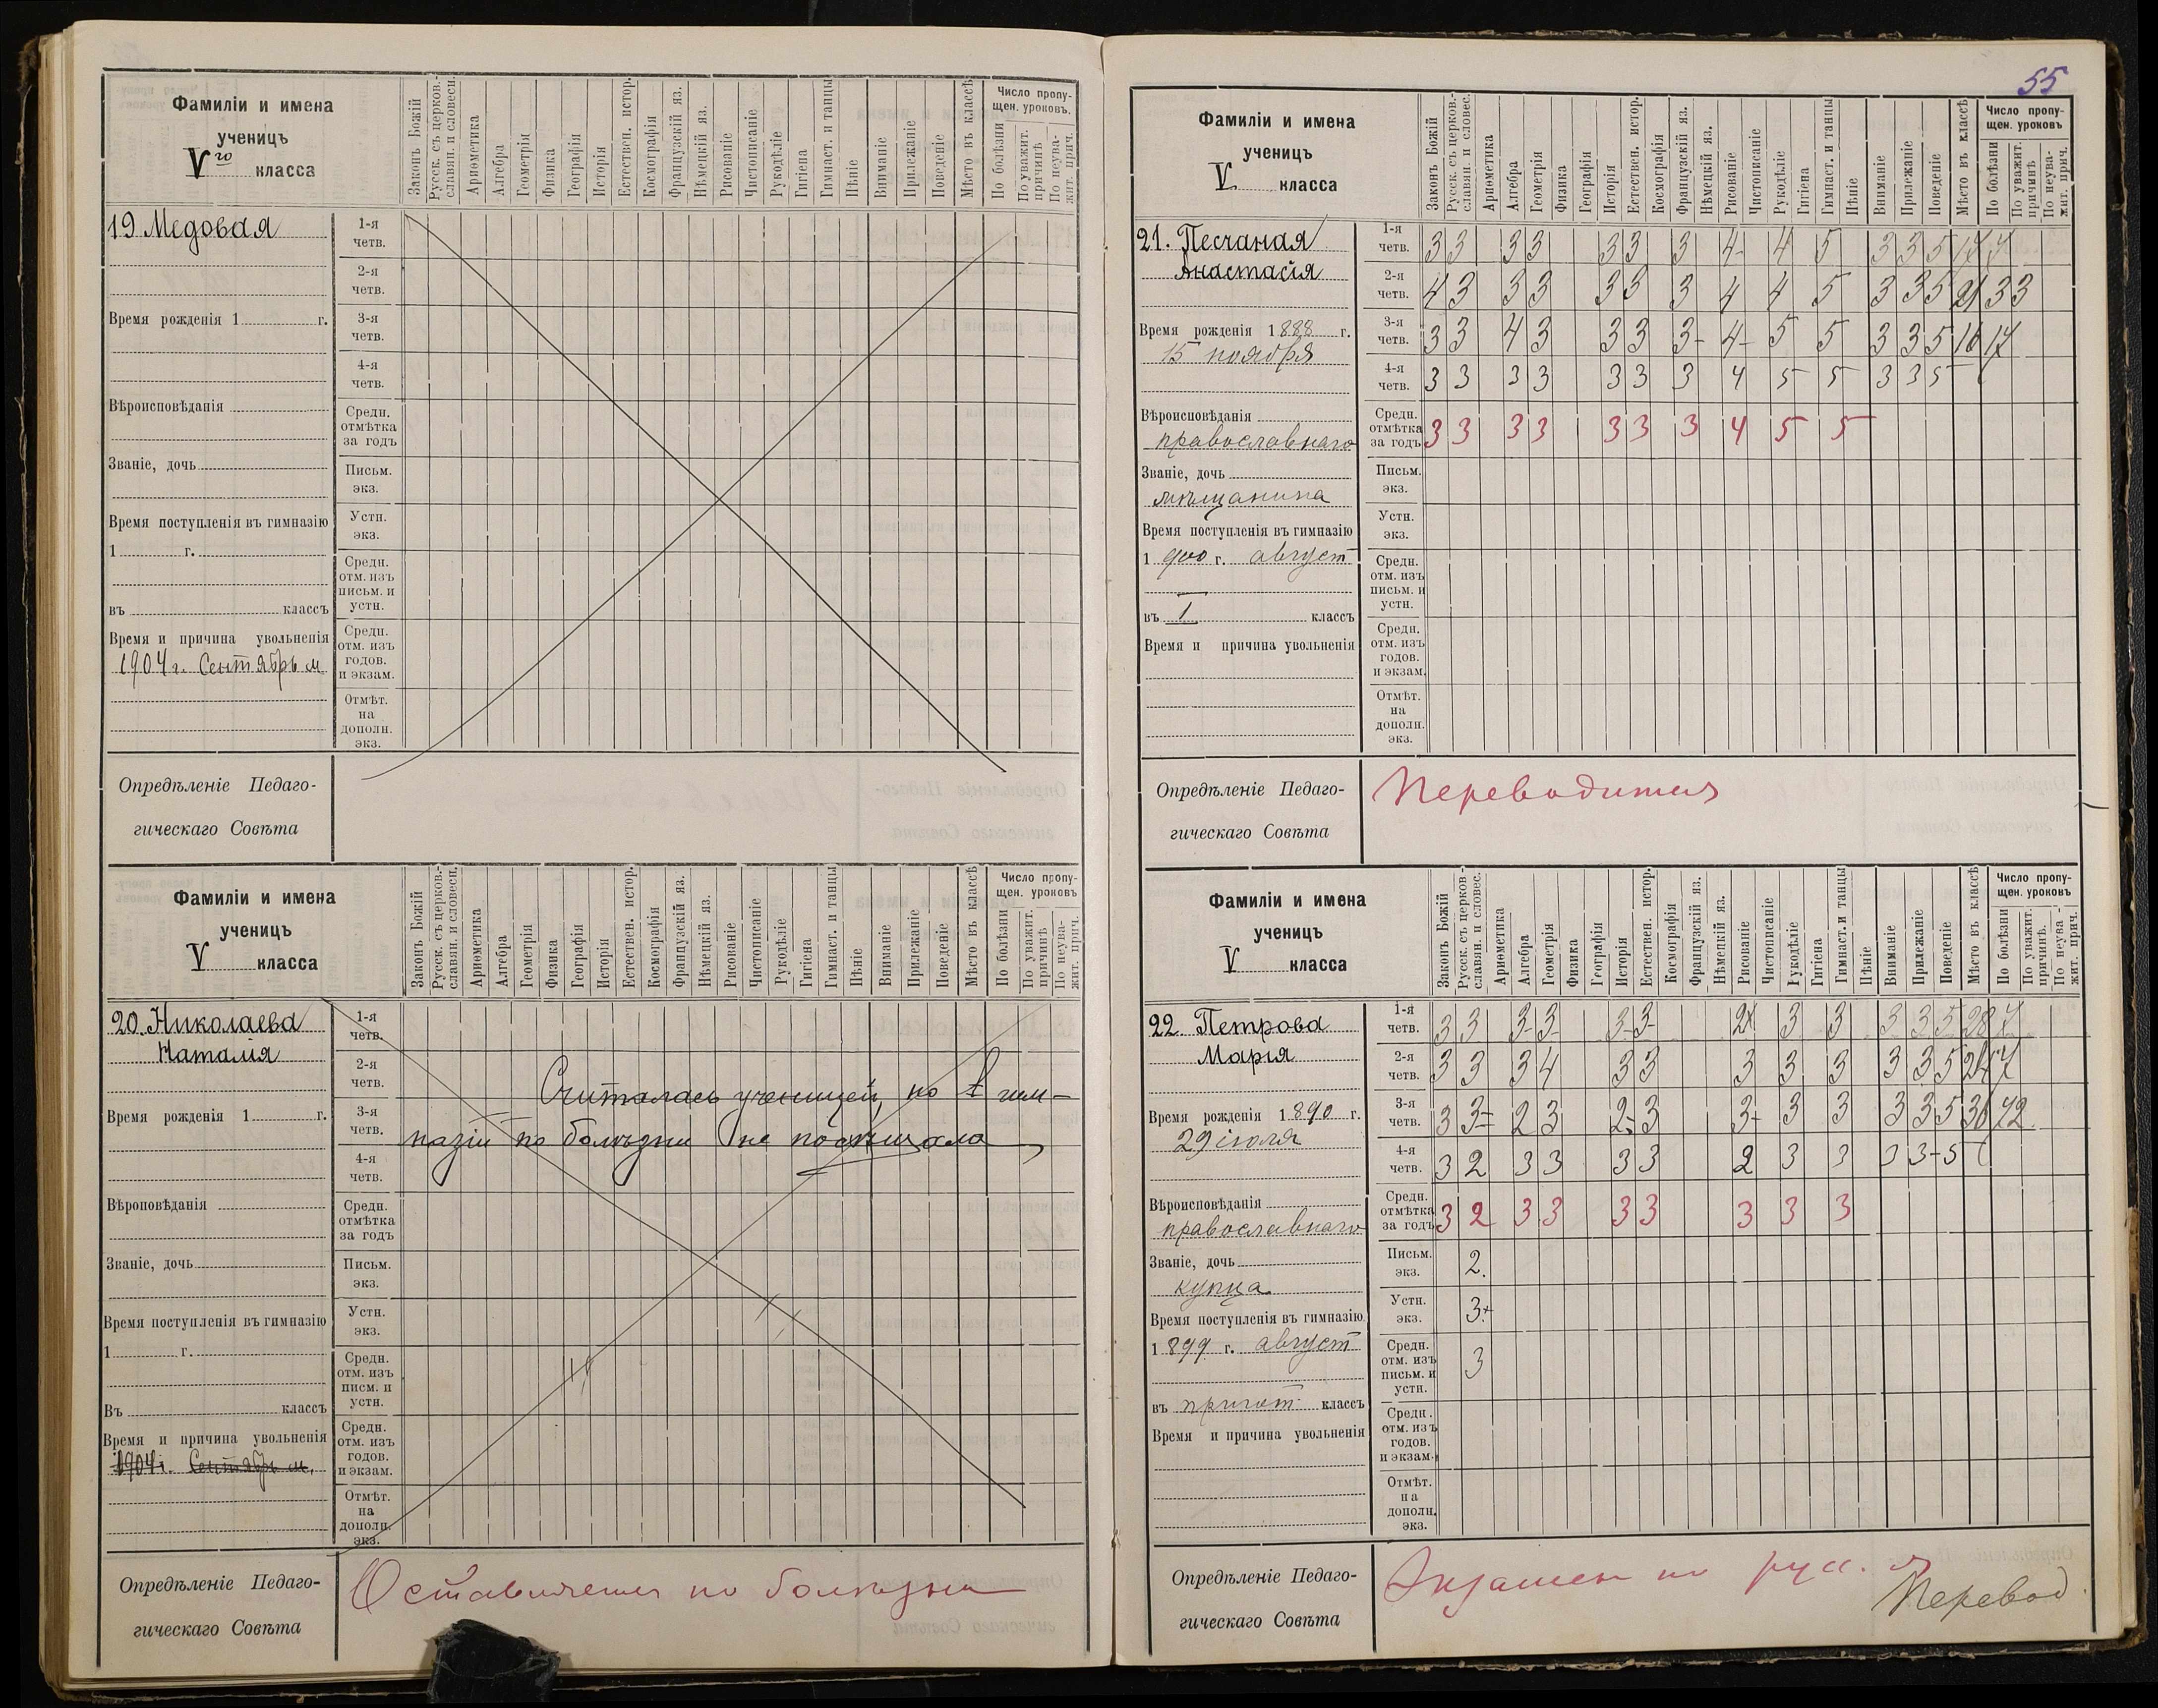 Фамиліи и имена
ученицъ
V го класса
Законъ Божій
Русск. съ церков.-
славян. и словесн.
Ариѳметика
Алгебра
Геометрія
Физика
Географія
Исторія
Естествен. истор.
Космографія
Французскій яз.
Нѣмецкій яз.
Рисованіе
Чистописаніе
Рукодѣліе
Гигіена
Гимнаст. и танцы
Пѣніе
Вниманіе
Прилежаніе
Поведеніе
Мѣсто въ классѣ
Число пропу-
щен. уроковъ.
По болѣзни
По уважит.
причинѣ
По неува-
жит. прич.
19 Медовая
Время рожденія 1 г.
Вѣроисповѣданія
Званіе, дочь
Время поступленія въ гимназію
1 г.
въ классъ
Время и причина увольненія
1904 г. Сентябрь м.
1-я
четв.
2-я
четв.
3-я
четв.
4-я
четв.
Средн.
отмѣтка
за годъ
Письм.
экз.
Устн.
экз.
Средн.
отм. изъ
письм. и
устн.
Средн.
отм. изъ
годов.
и экзам.
Отмѣт.
на
дополн.
экз.
Опредѣленіе Педаго-
гическаго Совѣта
Фамиліи и имена
ученицъ
V класса
Законъ Божій
Русск. съ церков.-
славян. и словесн.
Ариѳметика
Алгебра
Геометрія
Физика
Географія
Исторія
Естествен. истор.
Космографія
Французскій яз.
Нѣмецкій яз.
Рисованіе
Чистописаніе
Рукодѣліе
Гигіена
Гимнаст. и танцы
Пѣніе
Вниманіе
Прилежаніе
Поведеніе
Мѣсто въ классѣ
Число пропу-
щен. уроковъ
По болѣзни
По уважит.
причинѣ
По неува-
жит. прич.
20. Николаева
Наталія
Время рожденія 1 г.
Вѣроповѣданія
Званіе, дочь
Время поступленія въ гимназію
1 г.
Въ классъ
Время и причина увольненія
1904 г. Сентябрь м.
1-я
четв.
2-я
четв.
3-я
четв.
4-я
четв.
Средн.
отмѣтка
за годъ
Письм.
экз.
Устн.
экз.
Средн.
отм. изъ
писм. и
устн.
Средн.
отм. изъ
годов.
и экзам.
Отмѣт.
на
дополн.
экз.
Считалась ученицей, но в гим-
назіи по болѣзни не посѣщала
Опредѣленіе Педаго-
гическаго Совѣта
Оставляется по болѣзни
55
Фамиліи и имена
ученицъ
V класса
Законъ Божій
Русск. съ церков.-
славян. и словес.
Ариѳметика
Алгебра
Геометрія
Физика
Географія
Исторія
Естествен. истор.
Космографія
Французскій яз.
Нѣмецкій яз.
Рисованіе
Чистописаніе
Рукодѣліе
Гигіена
Гимнаст. и танцы
Пѣніе
Вниманіе
Прилежаніе
Поведеніе
Мѣсто въ классѣ
Число пропу-
щен. уроковъ
По болѣзни
По уважит.
причинѣ
По неува-
жит. прич.
21. Песчаная
Анастасія
Время рожденія 1888 г.
15 ноября
Вѣроисповѣданія
православнаго
Званіе, дочь
мѣщанина
Время поступленія въ гимназію
1 900 г. август
въ I классъ
Время и причина увольненія
1-я
четв. 3 3 3 3 3 3 3 4- 4 5 3 3 5
2-я
четв. 4 3 3 3 3 3 3 4 4 5 3 3 5 21 33
3-я
четв. 3 3 4 3 3 3 3- 4- 5 5 3 3 5 16 17
4-я
четв. 3 3 3 3 3 3 3 4 5 5 3 3 5
Средн.
отмѣтка
за годъ 3 3 3 3 3 3 3 4 5 5
Письм.
экз.
Устн.
экз.
Средн.
отм. изъ
письм. и
устн.
Средн.
отм. изъ
годов.
и экзам.
Отмѣт.
на
дополн.
экз.
Опредѣленіе Педаго-
гическаго Совѣта
Переводится
Фамиліи и имена
ученицъ
V класса
Законъ Божій
Русск. съ церков-
славян. и словес.
Ариѳметика
Алгебра
Геометрія
Физика
Географія
Исторія
Естествен. истор.
Космографія
Французскій яз.
Нѣмецкій яз.
Рисованіе
Чистописаніе
Рукодѣліе
Гигіена
Гимнаст. и танцы
Пѣніе
Вниманіе
Прилежаніе
Поведеніе
Мѣсто въ классѣ
Число пропу-
щен. уроковъ
По болѣзни
По уважит.
причинѣ.
По неува-
жит. прич.
22. Петрова
Марія
Время рожденія 1890 г.
29 іюля
Вѣроисповѣданія
православнаго
Званіе, дочь
купца
Время поступленія въ гимназію
1 899 г. август
въ пригот. классъ
Время и причина увольненія
1-я
четв. 3 3 3- 3- 3- 3- 3 3 3 3 5 28 7
2-я
четв. 3 3 3 4 3 3 3 3 3 3 3 5
3-я
четв. 3 3= 2 3 2 3 3- 3 3 3 3 5 30 72
4-я
четв. 3 2 3 3 3 3 2 3 3 3 3- 5
Средн.
отмѣтка
за годъ 3 2 3 3 3 3 3 3 3
Письм.
экз. 2.
Устн.
экз. 3+
Средн.
отм. изъ
письм. и
устн. 3
Средн.
отм. изъ
годов.
и экзам.
Отмѣт.
на
дополн.
экз.
Опредѣленіе Педаго-
гическаго Совѣта
Экзамен по русс. я
Перевод